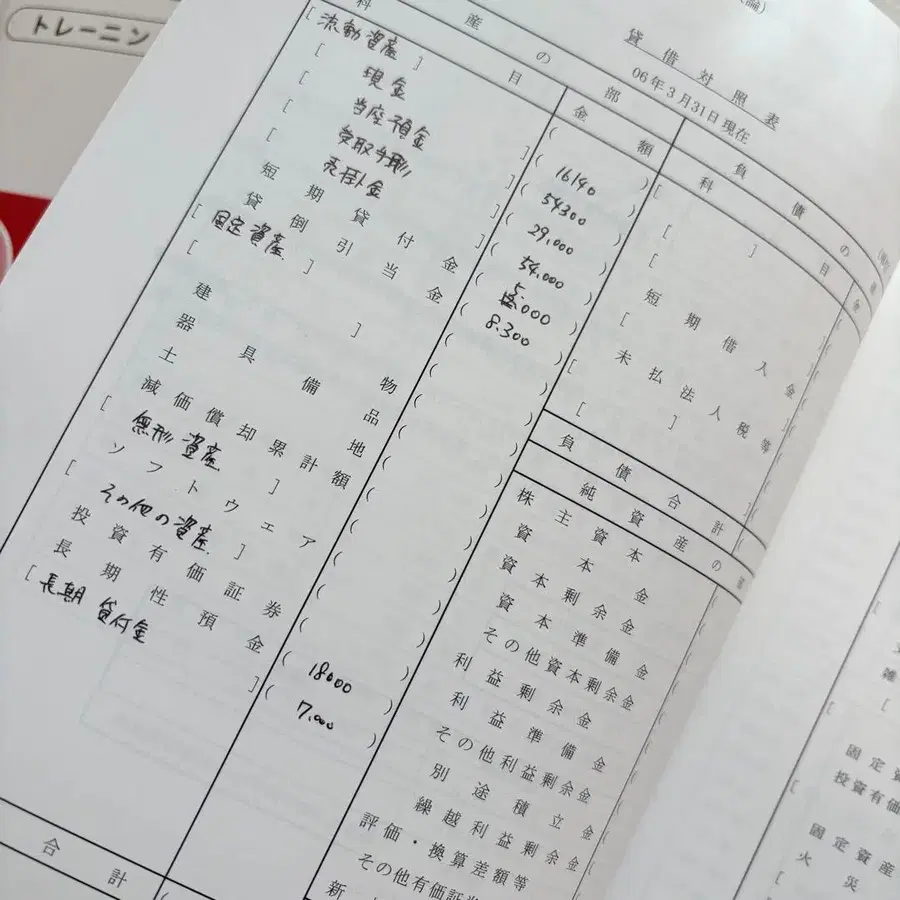 トレーニン
論)
貸借対照表
06年3月31日現在
産の部
負債の
科目 金額
科目 金
[流動資産]
[現金] (16140)
[当座預金] (54300)
[受取手形] (29,000)
[売掛金] (54,000)
短期貸付金 (5,000)
貸倒引当金 (8,300)
[固定資産]
[ ]
建物 ( )
器具備品 ( )
土地 ( )
減価償却累計額 ( )
[無形資産]
ソフトウェア ( )
[その他の資産]
投資有価証券 ( )
長期性預金 (18000)
[長期貸付金] (7,000)
合計 (
[ ]
[ ] (
短期借入金 (
[ ] (
未払法人税等 (
[ ] (
負債合計 (
純資産の
株主資本
資本金 (
資本剰余金 (
資本準備金 (
その他資本剰余金 (
利益剰余金 (
利益準備金 (
その他利益剰余金 (
別途積立金 (
繰越利益剰余金 (
評価・換算差額等
その他有価証
新
雑
[
固定資
投資有価
[
固定資産
火災
[